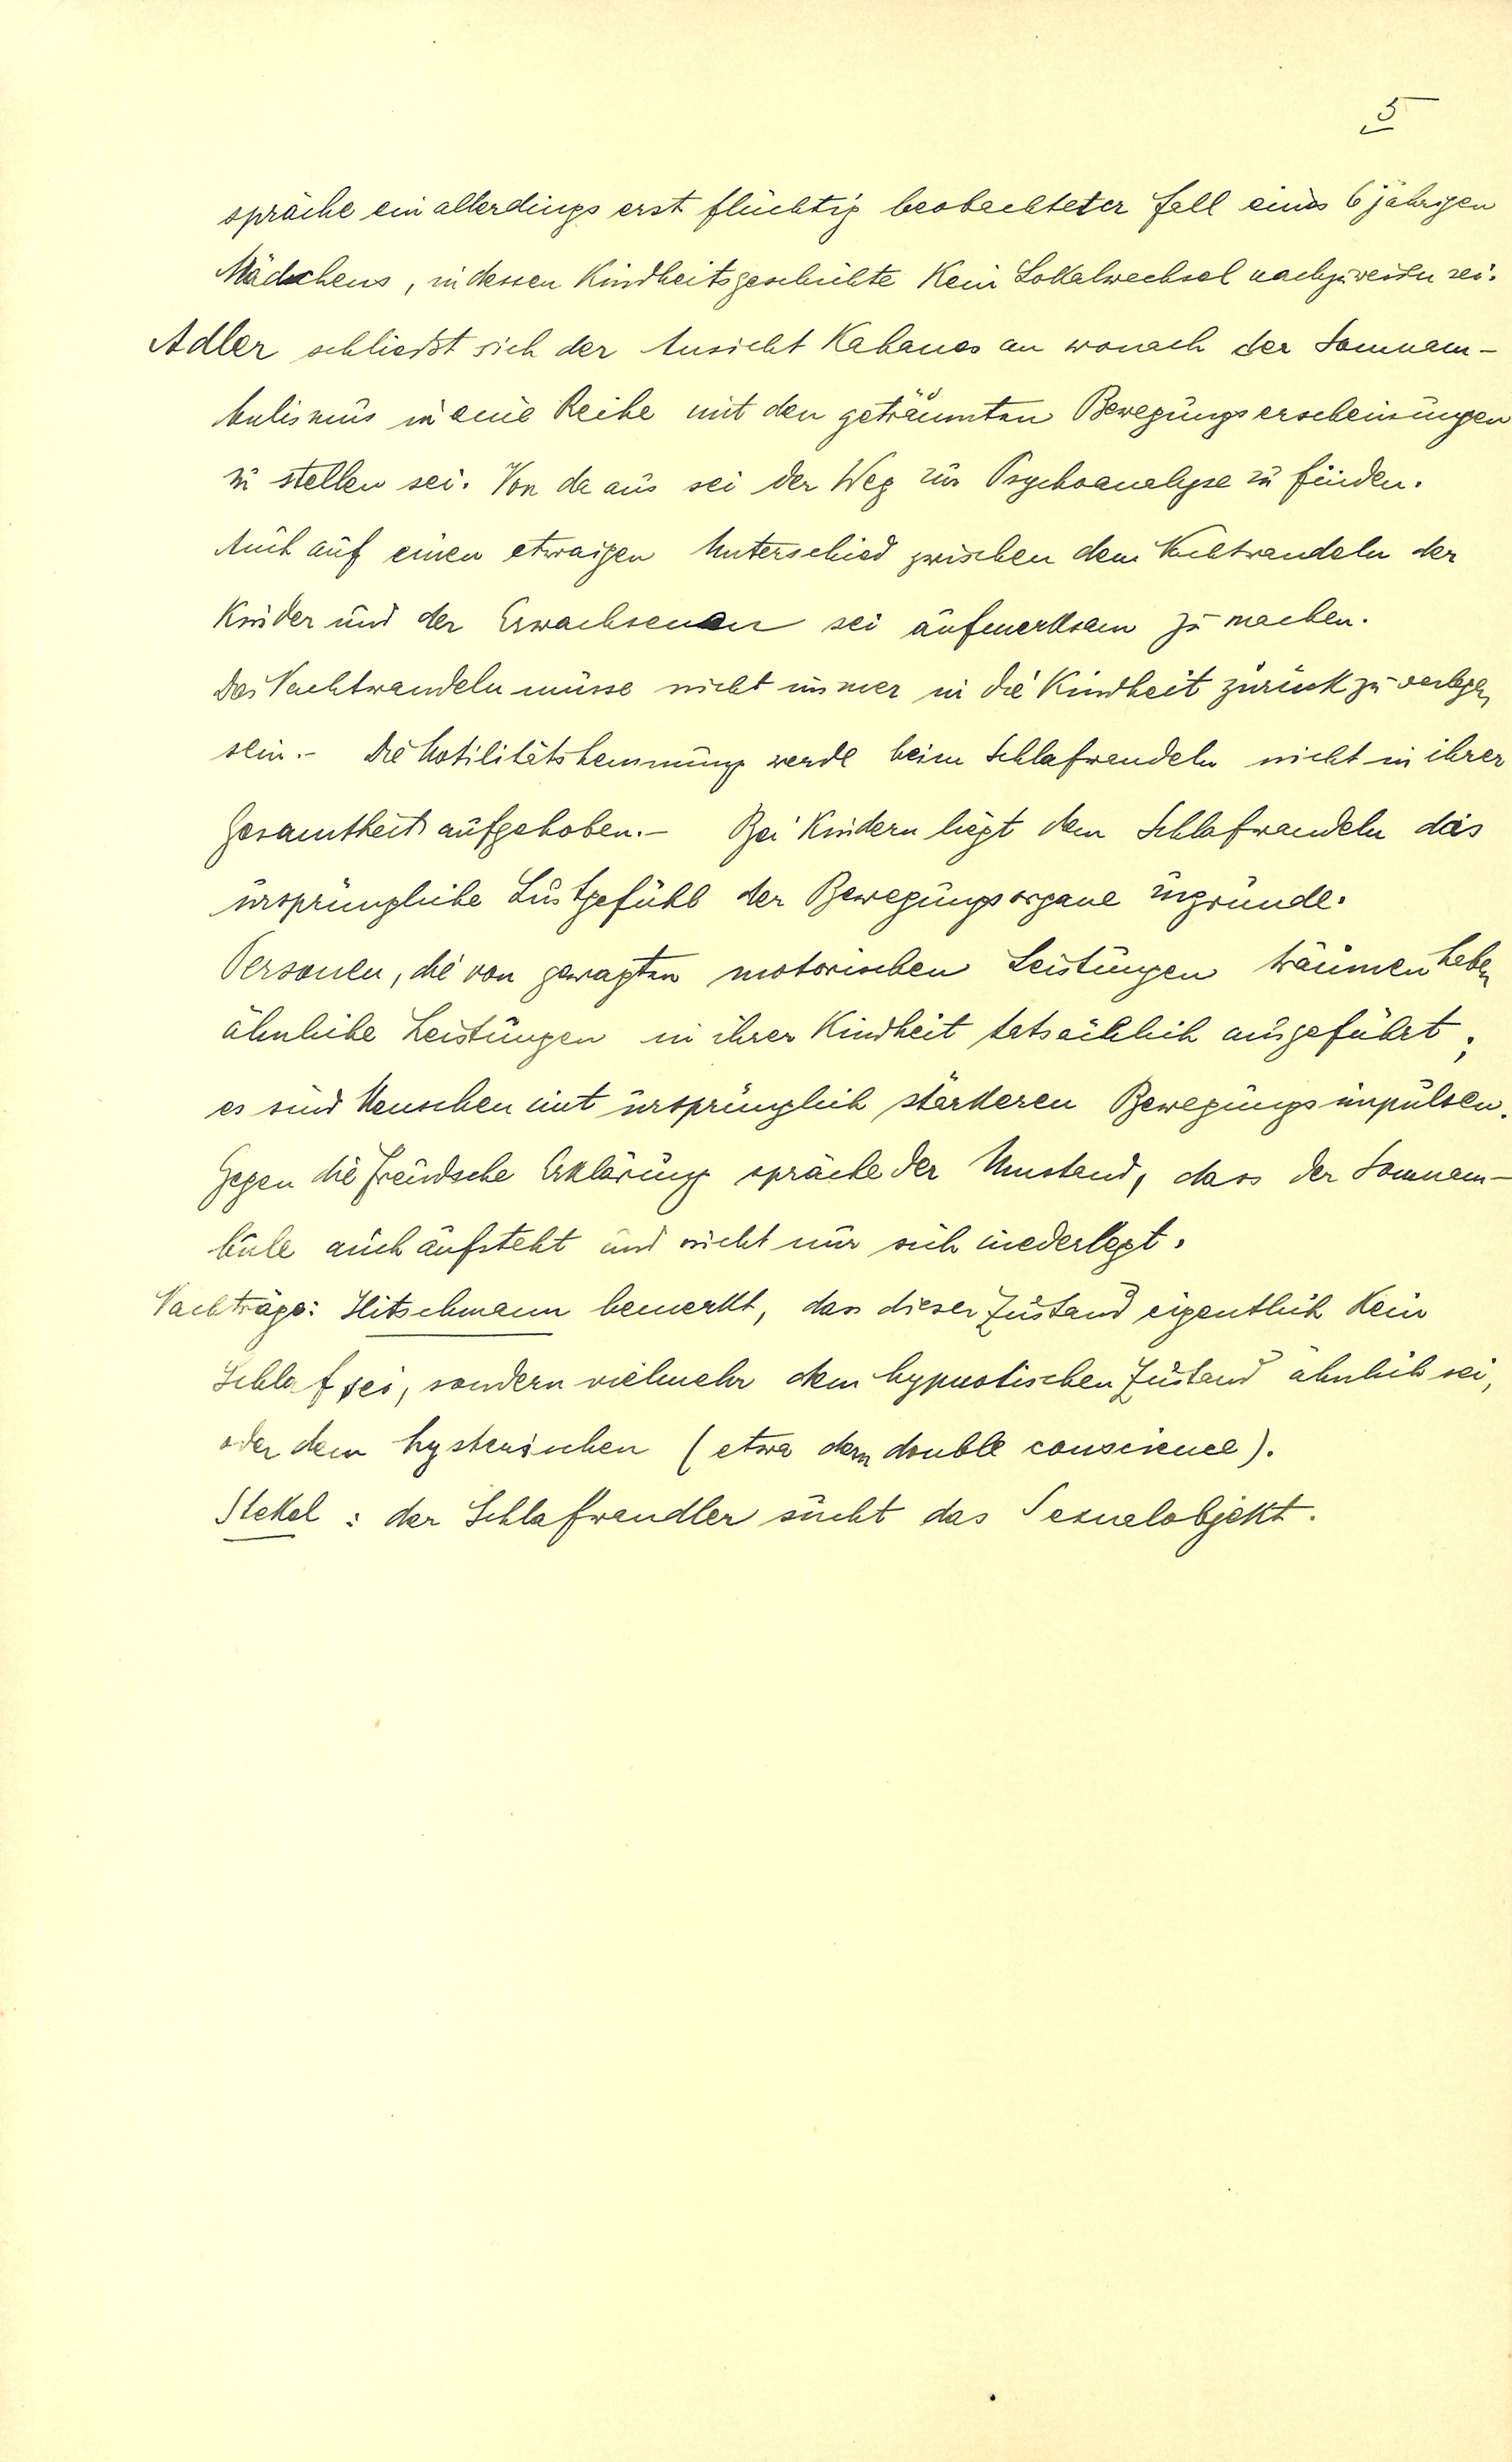 5
spräche ein allerdings erst flüchtig beobachteter Fall eines 6jährigen
Mädchens, in dessen Kindheitsgeschichte kein Lokalwechsel nachzuweisen sei.
Adler schliesst sich der Ansicht Kahanes an wonach der Somnam-
bulismus in eine Reihe mit den geträumten Bewegungserscheinungen
zu stellen sei. Von da aus sei der Weg zur Psychoanalyse zu finden.
Auch auf einen etwaigen Unterschied zwischen dem Nachtwandeln der
Kinder und der Erwachsenen sei aufmerksam zu machen.
Das Nachtwandeln müsse nicht immer in die Kindheit zurück zu verlegen
sein.- Die Motilitätshemmung werde beim Schlafwandeln nicht in ihrer
Gesamtheit aufgehoben.- Bei Kindern liegt dem Schlafwandeln das
ursprüngliche Lustgefühl der Bewegungsorgane zugrunde.
Personen, die von gewagten motorischen Leistungen träumen haben
ähnliche Leistungen in ihrer Kindheit tatsächlich ausgeführt;
es sind Menschen mit ursprünglich stärkeren Bewegungsimpulsen.
Gegen die Freudsche Erklärung spräche der Umstand, dass der Somnam-
bule auch aufsteht und nicht nur sich niederlegt.
Nachträge: Hitschmann bemerkt, dass dieser Zustand eigentlich kein
Schlaf sei, sondern vielmehr dem hypnotischen Zustand ähnlich sei,
oder dem hysterischen (etwa dem double conscience).
Stekel: der Schlafwandler sucht das Sexualobjekt.